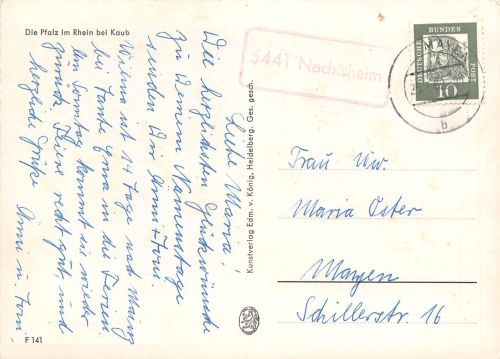 Die Pfalz im Rhein bei Kaub
5441 Nachtsheim
DEUTSCHE
BUNDES
POST
10
b
Liebe Maria!
Die herzlichsten Glückwünsche
zu Deinem Namenstage
senden Dir Anni + Toni.
Wilma ist 14 Tage nach Mainz
bei Tante Erna in die Ferien
am Sonntag kommt sie wieder
zurück. Feiere recht gut, und
herzliche Grüße Anni u. Toni
Kunstverlag Edm. v. König, Heidelberg. Ges. gesch.
Frau Ww.
Maria Oster
Mayen
Schillerstr. 16
F 141